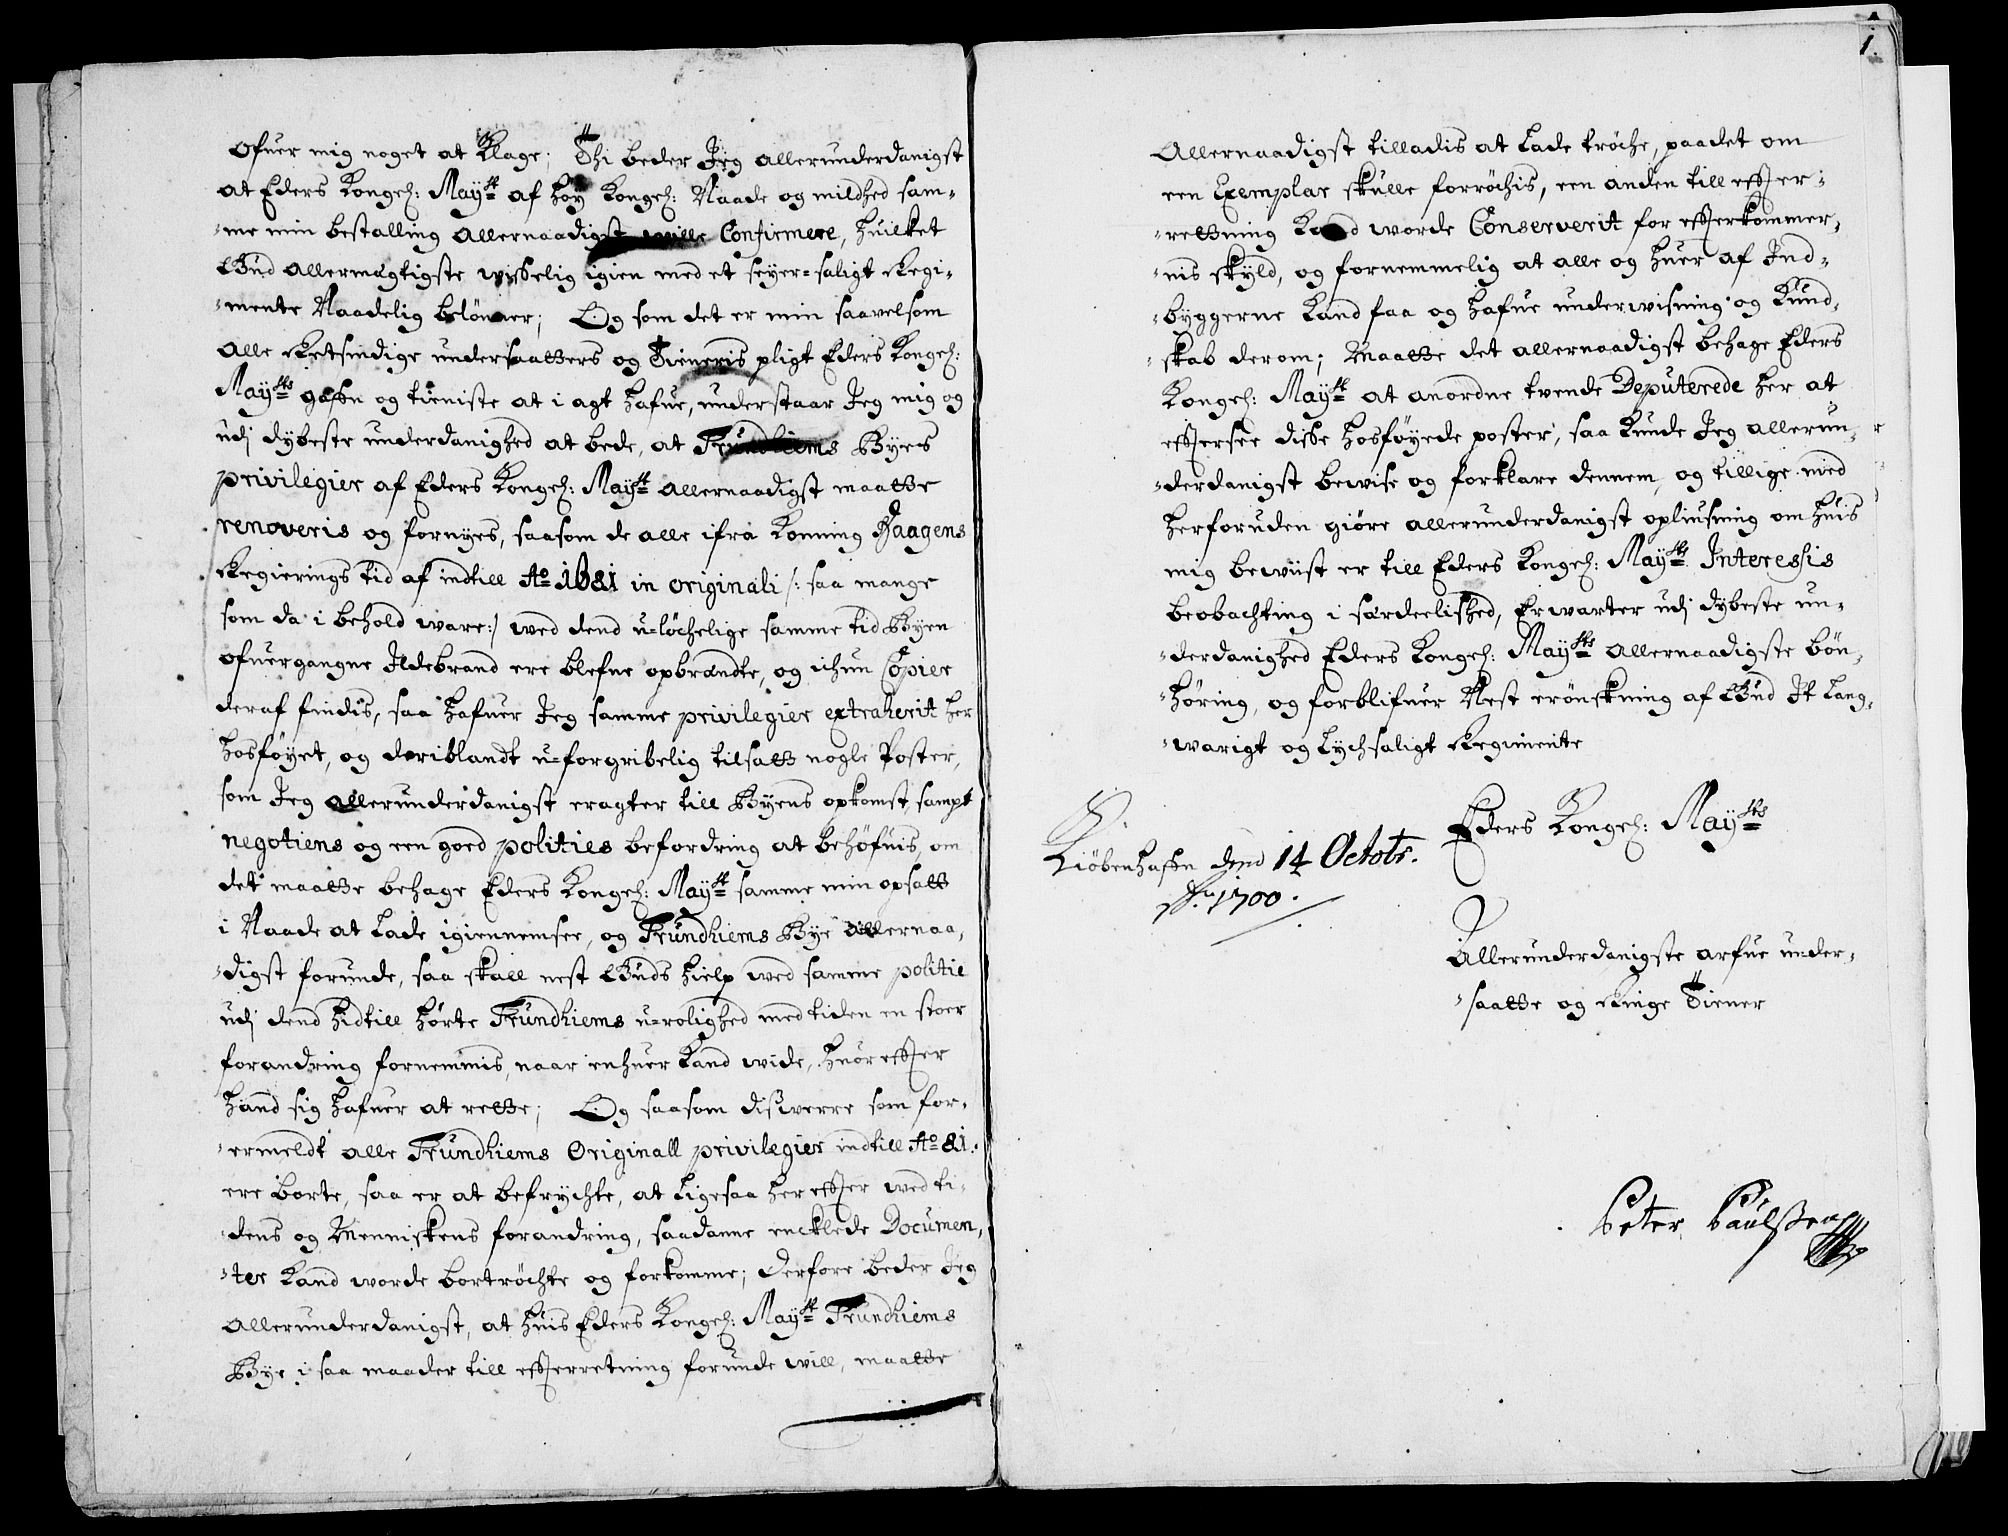 ofuer mig noget at Klage; Thi beder Jeg allerunderdanigst
at Eders Kongel: Mayst af høy Kongel: Naade og mildhed sam-
-me min bestalling allernaadigst wille Confirmere, huilket
Gud allermægtigste wisselig igien med et seyer-saligt Regi-
-mente Naadelig belønner; Og som det er min saavelsom
alle Retsindige undersaatters og Tieneris pligt Eders Kongel:
Maysts gaffn og tieniste at i agt hafue, understaar Jeg mig og
udj dybeste underdanighed at bede, at Trundhiems Byes
privilegier af Eders Kongel: Mayst allernaadigst maatte
renoveris og fornyes, saasom de alle ifra Konning Haagens
Regierings tid af indtill Ao 1681 in originali /: saa mange
som da i behold ware:/ wed dend u-løchelige samme tid Byen
ofuergangne Ildebrand ere blefne opbrændte, og ichun Copier
deraf findis, saa hafuer Jeg samme privilegier extraherit her
hosføyet, og deriblandt u-forgribelig tilsatt nogle Poster,
som Jeg allerunderdanigst eragter till Byens opkomst, sampt
negotiens og een goed polities befordring at behøfuis, om
det maatte behage Eders Kongel: Mayst samme min opsatt
i Naade at Lade igiennemsee, og Trundhiems Bye allernaa-
-digst forunde, saa skall nest Guds hielp wed samme politie
udj dend hidtill hørte Trundhiems u-rolighed med tiden en stoer
forandring fornemmis, naar enhuer Kand wide, huor effter
hand sig hafuer at rette; Og saasom dißwerre som for-
-ermeldt alle Trundhiems Originall privilegier indtill Ao 81.
ere borte, saa er at befrychte, at ligesaa her effter wed ti-
dens og Menniskens forandring, saadanne encklede Documen-
-ter Kand worde bortrøchte og forkomme; derfore beder Jeg
allerunderdanigst, at huis Eders Kongel: Mayst Trundhiems
Bye i saa maader till effterretning forunde will, maatte
1.
Allernaadigst tilladis at Lade trøche, paadet om
een Exemplar skulle forrøchis, een anden till effter-
-rettning Kand worde Conserverit for effterkommer-
-nis skyld, og fornemmelig at alle og huer af Ind-
-byggerne Kand faa og hafue underwisning og Kund-
-skab derom; Maatte det allernaadigst behage Eders
Kongel: Mayst at anordne tvende Deputerede her at
efftersee disse hosføyede poster, saa Kunde Jeg allerun-
-derdanigst bewise og forklare dennem, og tillige med
herforuden giøre allerunderdanigst opliusning om huis
mig bewiist er till Eders Kongel: Maysts Interessis
beobachting i særdeelished, Erwarter udj dybeste un-
-derdanighed Eders Kongel: Maysts allernaadigste bøn-
-høring, og forblifuer Nest erønskning af Gud It Lang-
-warigt og Lychsaligt Regimente
Eders Kongel: Maysts
Kiøbenhaffn dend 14 Octobr.
Ao 1700.
Allerunderdanigste arfue under-
-saatte og Ringe Tiener
Peter Paulssen